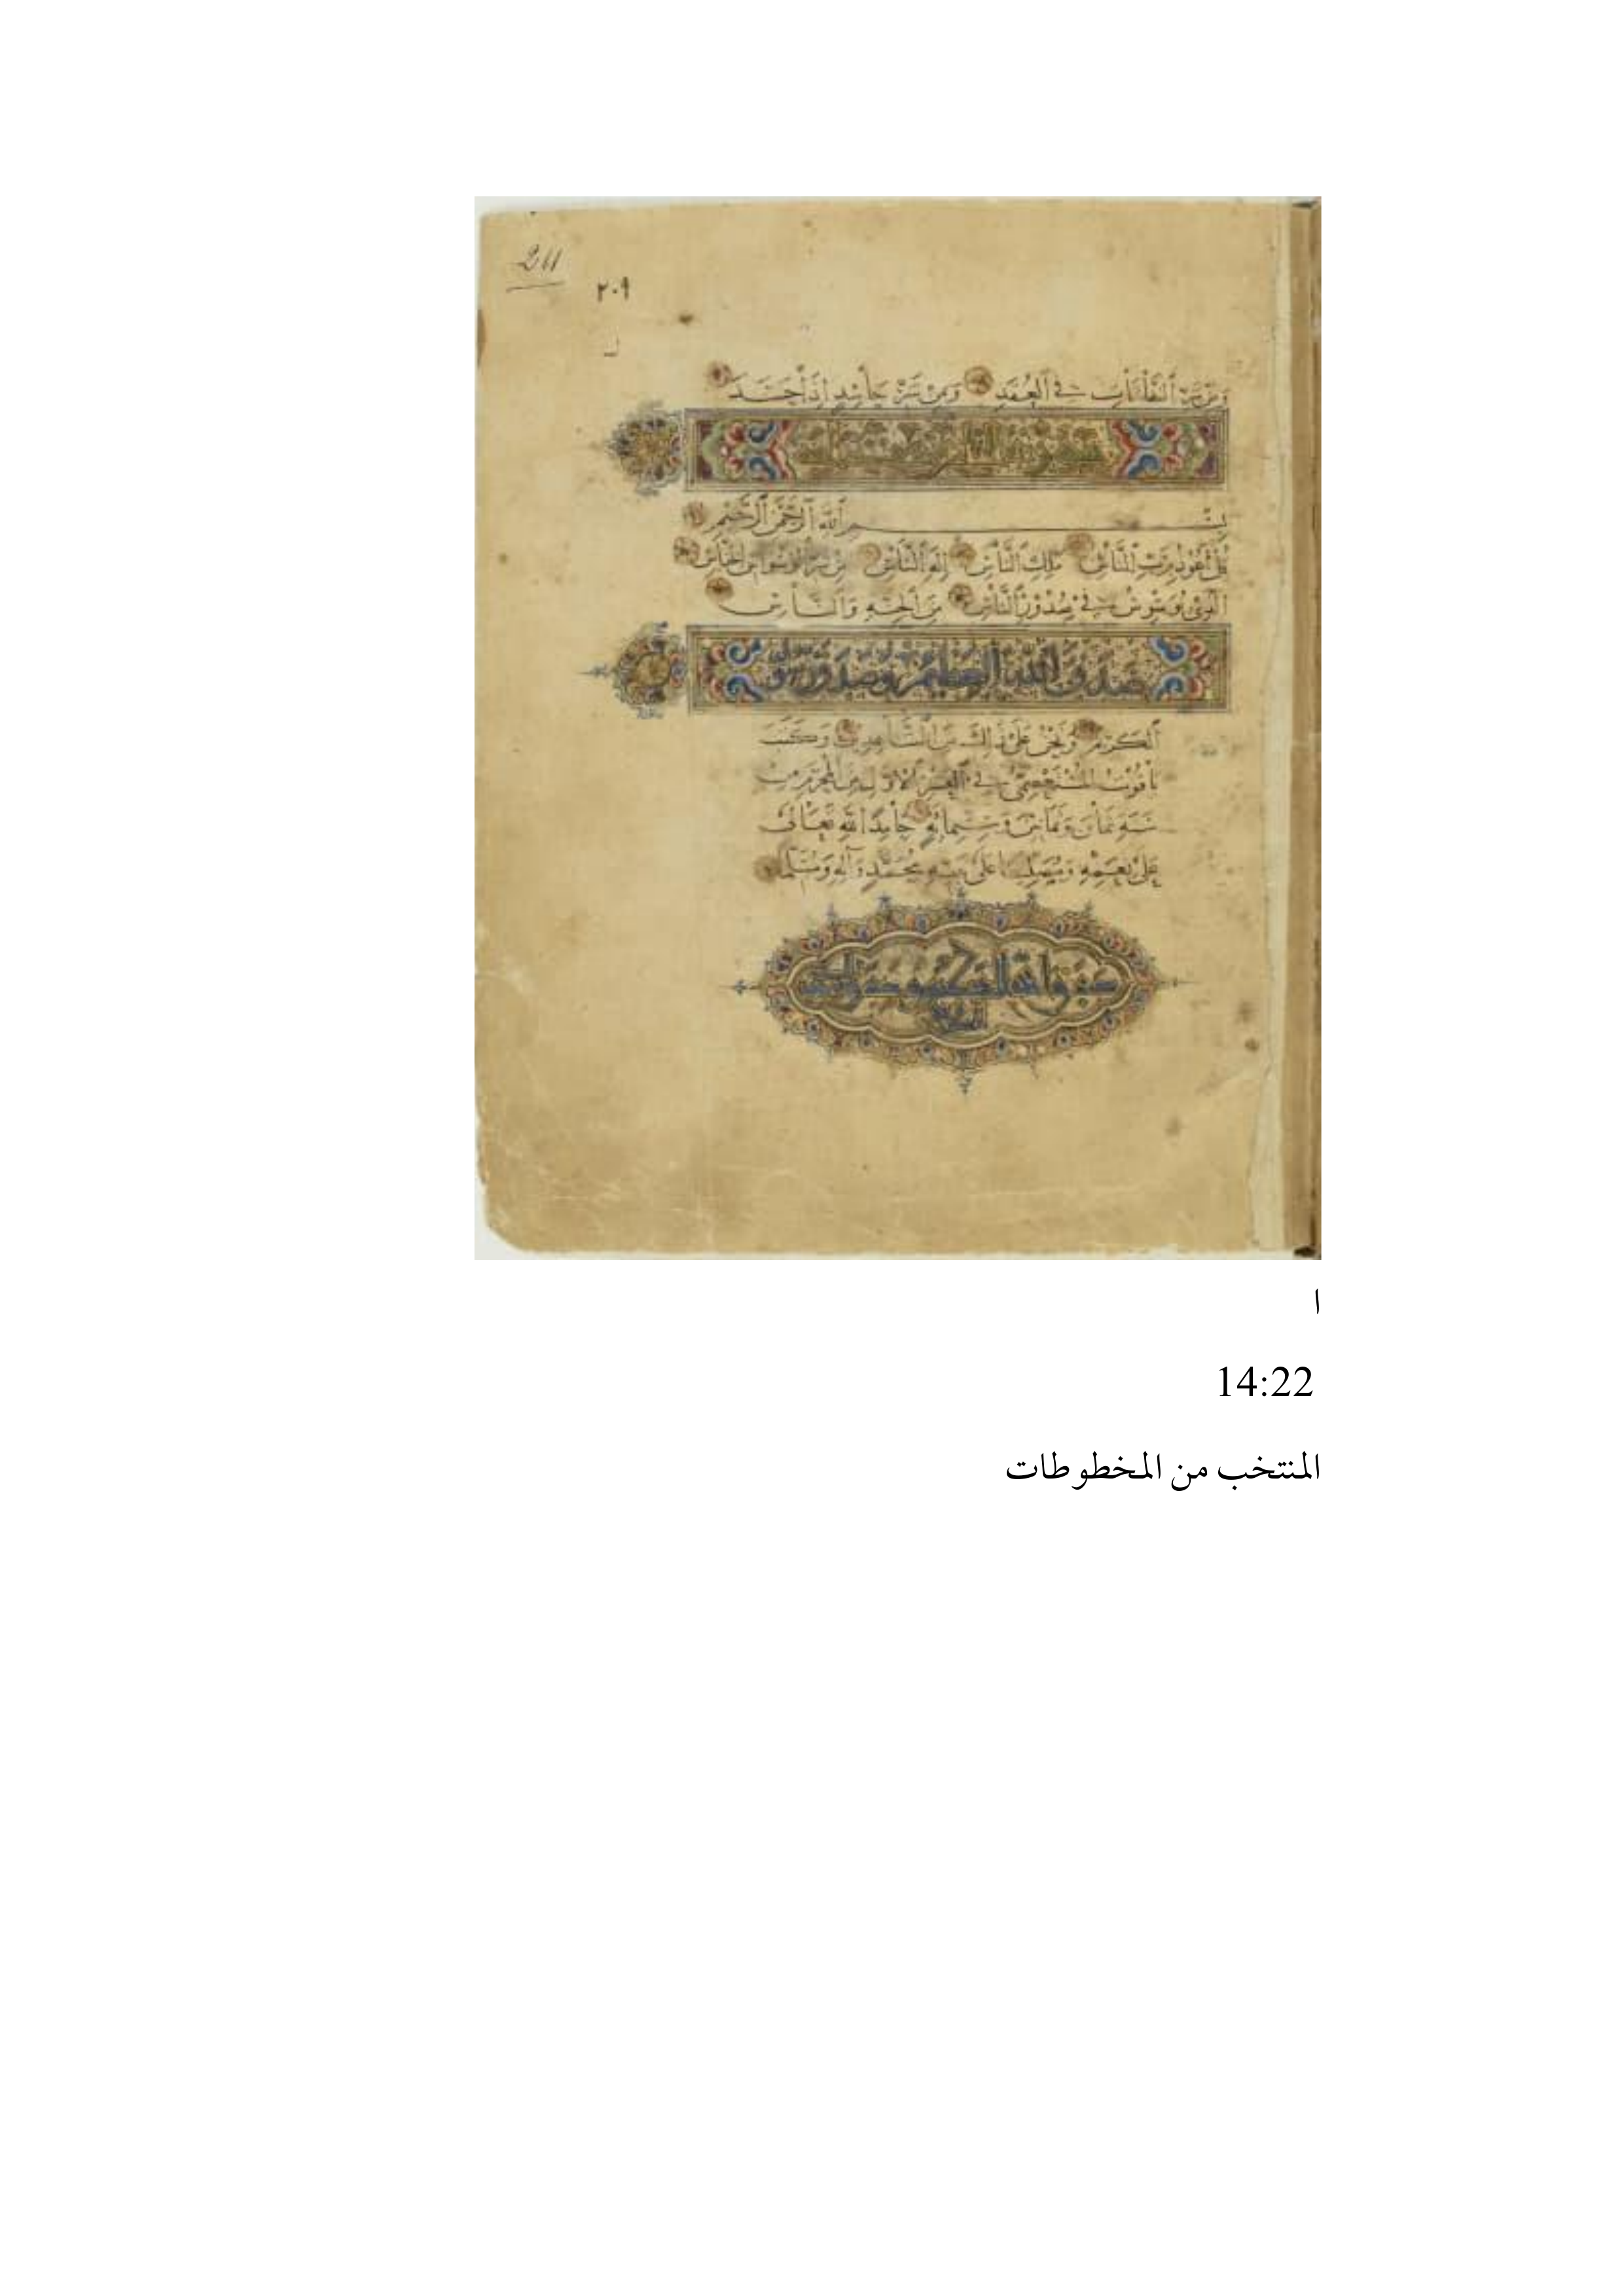 211
٢٠٩
وَمِنْ شَرِّ ٱلنَّفَّاثَاتِ فِي ٱلْعُقَدِ وَمِنْ شَرِّ حَاسِدٍ إِذَا حَسَدَ
بِسْمِ ٱللَّهِ ٱلرَّحْمَٰنِ ٱلرَّحِيمِ
قُلْ أَعُوذُ بِرَبِّ ٱلنَّاسِ مَلِكِ ٱلنَّاسِ إِلَهِ ٱلنَّاسِ مِنْ شَرِّ ٱلْوَسْوَاسِ ٱلْخَنَّاسِ
ٱلَّذِي يُوَسْوِسُ فِي صُدُورِ ٱلنَّاسِ مِنَ ٱلْجِنَّةِ وَٱلنَّاسِ
صدق الله العظيم وصدق رسوله
ٱلكريم ونحن على ذلك من الشاهدين وكتب
ياقوت المستعصمي في العشر الاول من المحرم من
سنة ثمان وثمانين وستمائة حامدا لله تعالى
على نعمه ومصليا على نبيه محمد وآله ومسلما
ا
14:22
المنتخب من المخطوطات